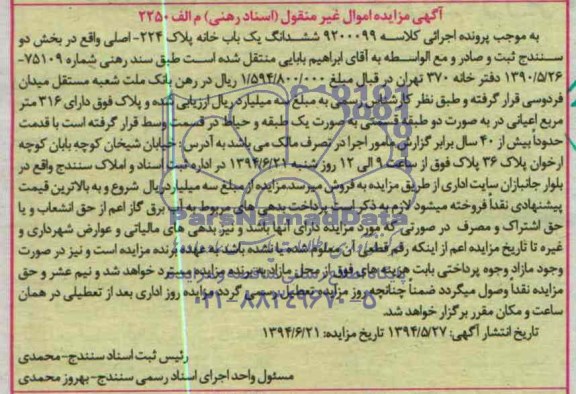 آگهی مزایده اموال غیر منقول (اسناد رهنی) م الف ۲۲۵۰
به موجب پرونده اجرائی کلاسه ۹۲۰۰۰۹۹ ششدانگ یک باب خانه پلاک ۲۲۴- اصلی واقع در بخش دو
سنندج ثبت و صادر و مع الواسطه به آقای ابراهیم بابایی منتقل شده است طبق سند رهنی شماره ۷۵۱۰۹-
۱۳۹۰/۵/۲۶ دفتر خانه ۳۷۰ تهران در قبال مبلغ ۱/۵۹۴/۸۰۰/۰۰۰ ریال در رهن بانک ملت شعبه مستقل میدان
فردوسی قرار گرفته و طبق نظر کارشناس رسمی به مبلغ سه میلیارد ریال ارزیابی شده و پلاک فوق دارای ۳۱۶ متر
مربع اعیانی در به صورت دو طبقه قسمتی به صورت یک طبقه و حیاط در قسمت وسط قرار گرفته است با قدمت
حدوداً بیش از ۴۰ سال برابر گزارش مامور اجرا در تصرف مالک می باشد به آدرس: خیابان شیخان کوچه بابان کوچه
ارخوان پلاک ۳۶ پلاک فوق از ساعت ۹ الی ۱۲ روز شنبه ۱۳۹۴/۶/۲۱ در اداره ثبت اسناد و املاک سنندج واقع در
بلوار جانبازان سایت اداری از طریق مزایده به فروش میرسد.مزایده از مبلغ سه میلیارد ریال شروع و به بالاترین قیمت
پیشنهادی نقداً فروخته میشود لازم به ذکر است پرداخت بدهی های مربوط به آب برق گاز اعم از حق انشعاب و یا
حق اشتراک و مصرف در صورتی که مورد مزایده دارای آنها باشد و نیز بدهی های مالیاتی و عوارض شهرداری و
غیره تا تاریخ مزایده اعم از اینکه رقم قطعی آن معلوم شده یا نشده باشد به عهده برنده مزایده است و نیز در صورت
وجود مازاد وجوه پرداختی بابت هزینه های فوق از محل مازاد به برنده مزایده مسترد خواهد شد و نیم عشر و حق
مزایده نقداً وصول میگردد ضمناً چنانچه روز مزایده تعطیل رسمی گردد مزایده روز اداری بعد از تعطیلی در همان
ساعت و مکان مقرر برگزار خواهد شد.
تاریخ انتشار آگهی: ۱۳۹۴/۵/۲۷ تاریخ مزایده: ۱۳۹۴/۶/۲۱
رئیس ثبت اسناد سنندج-محمدی
مسئول واحد اجرای اسناد رسمی سنندج- بهروز محمدی
ParsNamadData
۰۲۱-۸۸۳۴۹۶۷۰-۵